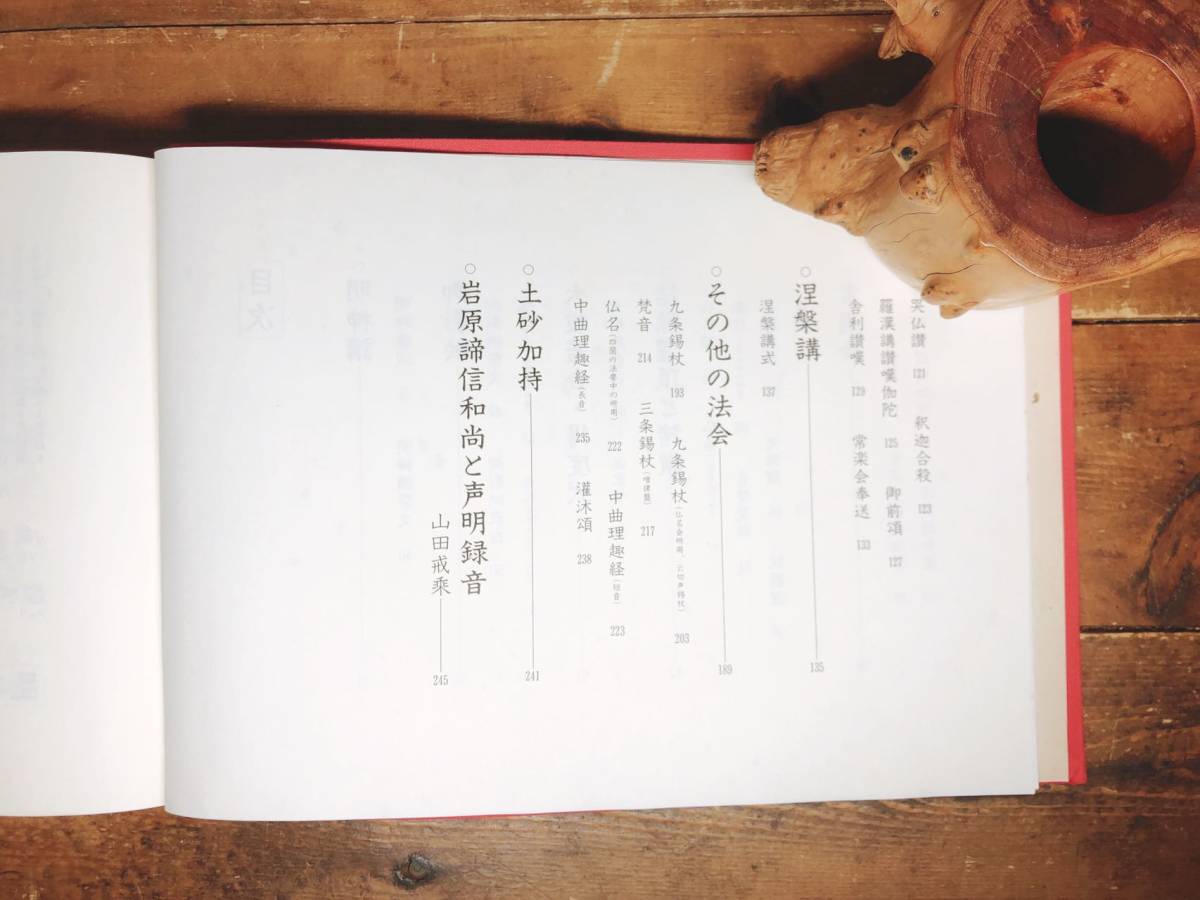 哭仏讃 121 釈迦合殺 123
羅漢講讃嘆伽陀 125 御前頌 127
舎利讃嘆 129 常楽会奉送 133
○涅槃講 135
涅槃講式 137
○その他の法会 189
九条錫杖 193 九条錫杖(仏名会所用、云切声錫杖) 203
梵音 214 三条錫杖(噌律盤) 217
仏名(四箇の法要中の所用) 222 中曲理趣経(短音) 223
中曲理趣経(長音) 235 灌沐頌 238
○土砂加持 241
○岩原諦信和尚と声明録音
山田戒乗 245
目次